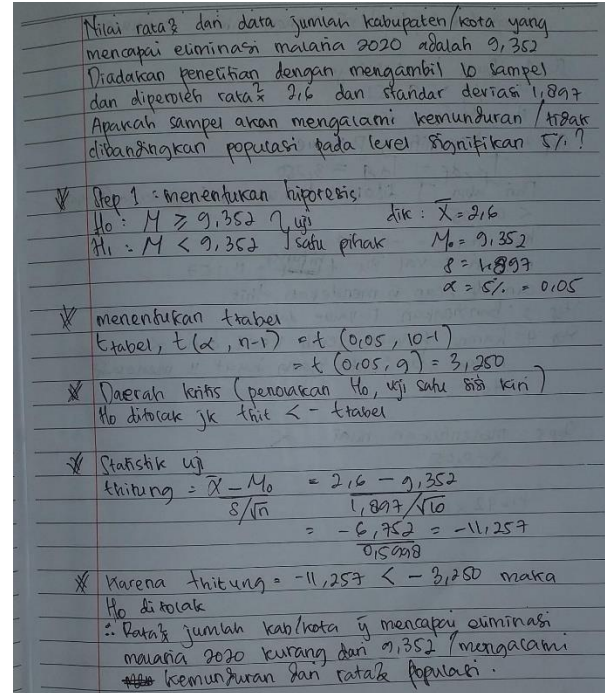 Nilai rata² dari data jumlah kabupaten/kota yang
mencapai eliminasi malaria 2020 adalah 9,352
Diadakan penelitian dengan mengambil 10 sampel
dan diperoleh rata² 2,6 dan standar deviasi 1,897
Apakah sampel akan mengalami kemunduran / tidak
dibandingkan populasi pada level signifikan 5%?
Step 1 : menentukan hipotesis
H₀ : M ≥ 9,352 } uji
H₁ : M < 9,352 } satu pihak
dik : X̄ = 2,6
M₀ = 9,352
s = 1,897
α = 5% = 0,05
menentukan ttabel
ttabel, t(α, n-1) = t (0,05, 10-1)
= t (0,05, 9) = 3,250
Daerah kritis (penolakan H₀, uji satu sisi kiri)
H₀ ditolak jk thit < - ttabel
Statistik uji
thitung = X̄ - M₀ / s/√n = 2,6 - 9,352 / 1,897/√10
= -6,752 / 0,5998 = -11,257
Karena thitung = -11,257 < - 3,250 maka
H₀ ditolak
∴ Rata² jumlah kab/kota yg mencapai eliminasi
malaria 2020 kurang dari 9,352 / mengalami
kemunduran dari rata² populasi.